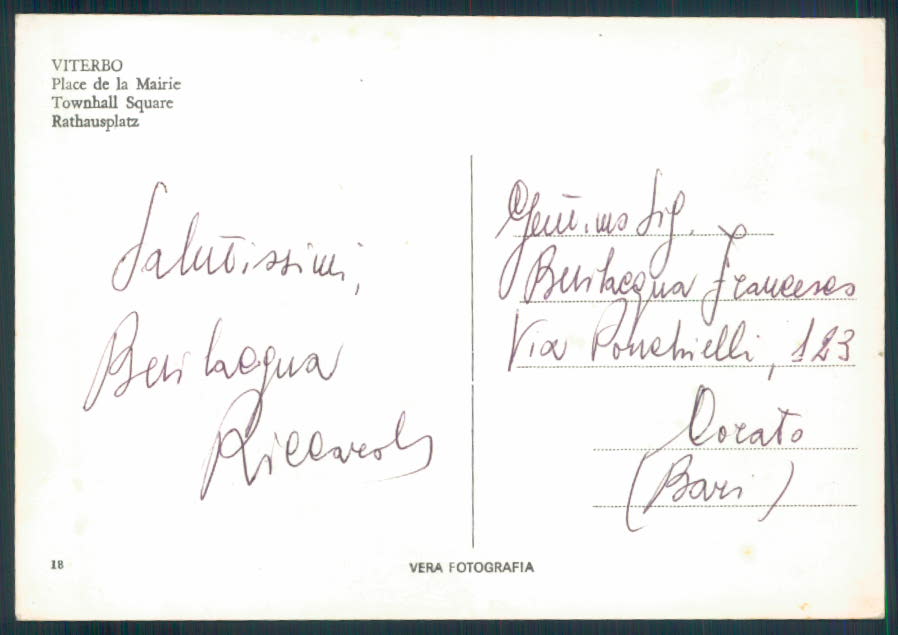 VITERBO
Place de la Mairie
Townhall Square
Rathausplatz
Salutissimi,
Bevilacqua
Riccardo
Gent.mo Sig.
Bevilacqua Francesco
Via Ponchielli, 123
Corato
(Bari)
18
VERA FOTOGRAFIA